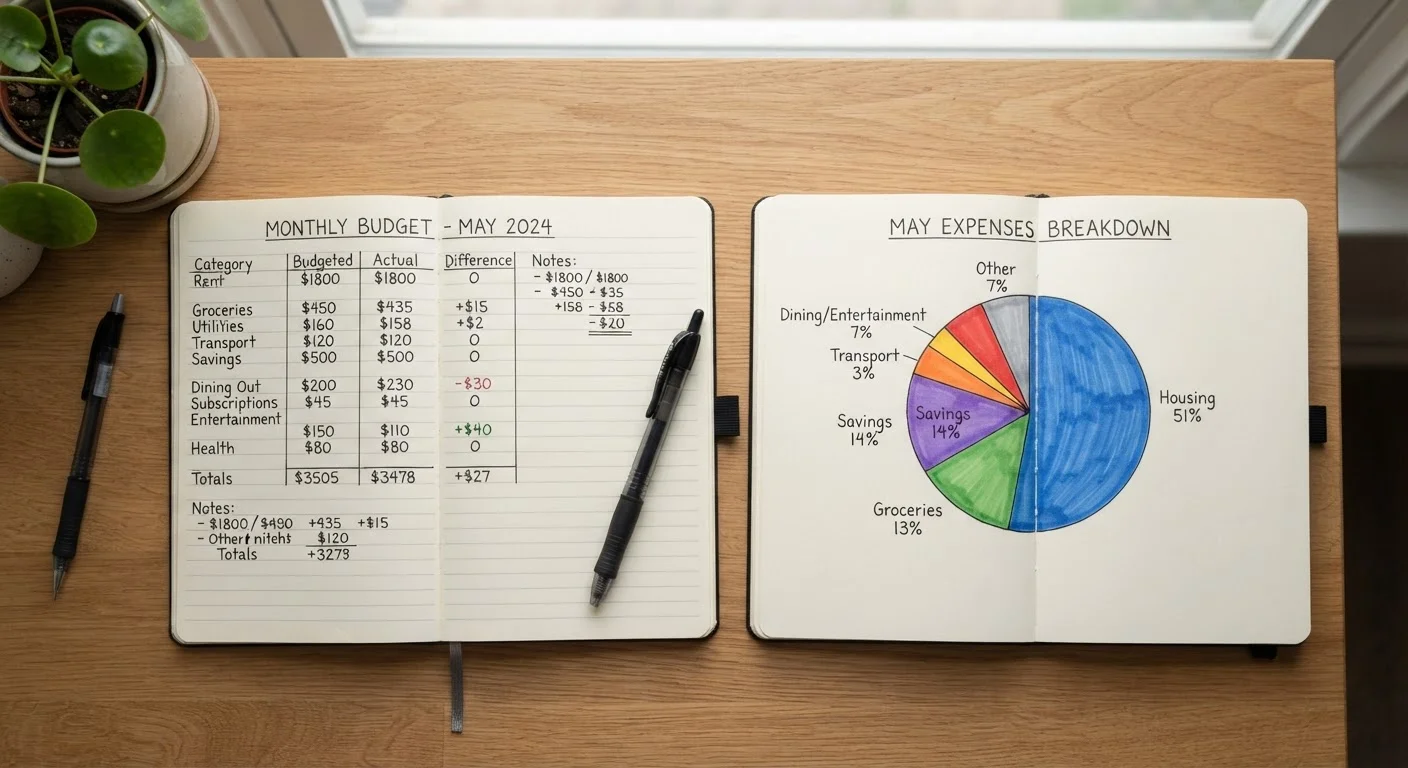 MONTHLY BUDGET - MAY 2024
Category Budgeted Actual Difference
Rent $1800 $1800 0
Groceries $450 $435 +$15
Utilities $160 $158 +$2
Transport $120 $120 0
Savings $500 $500 0
Dining Out $200 $230 -$30
Subscriptions $45 $45 0
Entertainment
$150 $110 +$40
Health $80 $80 0
Totals $3505 $3478 +$27
Notes:
- $1800 / $490 +435 +$15
- Other $120
Totals +3273
Notes:
- $1800 / $1800
- $450 - $35
+158 - $58
- $20
MAY EXPENSES BREAKDOWN
Other
7%
Dining/Entertainment
7%
Transport
3%
Savings
14%
Savings
14%
Groceries
13%
Housing
51%